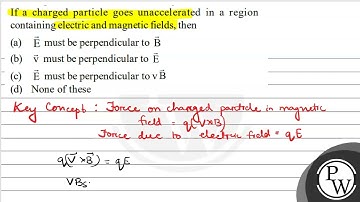 If a charged particle goes unaccelerated in a region
containing electric and magnetic fields, then
(a) E⃗ must be perpendicular to B⃗
(b) v⃗ must be perpendicular to E⃗
(c) E⃗ must be perpendicular to v B⃗
(d) None of these
Key Concept : Force on charged particle in magnetic
field = q(V×B)
Force due to electric field = qE
q(V⃗×B⃗) = qE
VBs
PW